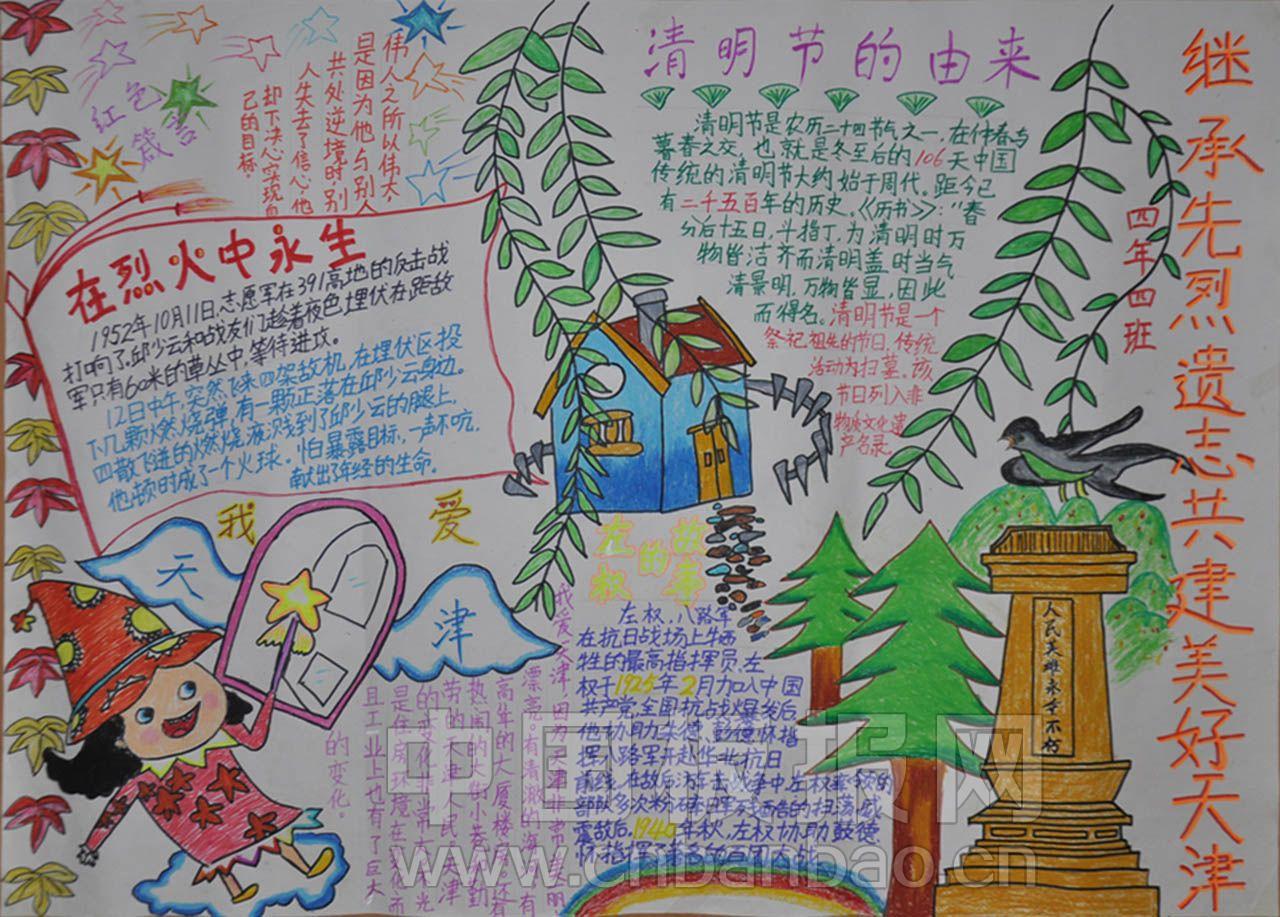 继承先烈遗志共建美好天津
四年四班
清明节的由来
清明节是农历二十四节气之一,在仲春与
暮春之交,也就是冬至后的106天中国
传统的清明节大约始于周代。距今已
有二千五百年的历史。《历书》:"春
分后十五日,斗指丁,为清明时万
物皆洁齐而清明盖时当气
清景明,万物皆显,因此
而得名。清明节是一个
祭祀祖先的节日,传统
活动为扫墓。该
节日列入非
物质文化遗
产名录。
红色
箴言
伟人之所以伟大,
是因为他与别人
共处逆境时,别
人失去了信心,他
却下决心实现自
己的目标。
在烈火中永生
1952年10月11日,志愿军在391高地的反击战
打响了,邱少云和战友们趁着夜色埋伏在距敌
军只有60米的草丛中,等待进攻。
12日中午,突然飞来四架敌机,在埋伏区投
下几颗燃烧弹,有一颗正落在邱少云身边。
四散飞迸的燃烧液溅到了邱少云的腿上,
他顿时成了一个火球。怕暴露目标,一声不吭,
献出了年轻的生命。
我爱
天津
我爱天津,因为天津非常美丽,
漂亮。有清澈的海
高耸的大厦楼房。还有
热闹的大街小巷。勤
劳的天津人民,天津
的变化非常大。光
是住房环境在变化,而
且工业上也有了巨大
的变化。
左权的故事
左权,八路军
在抗日战场上牺
牲的最高指挥员,左
权于1925年2月加入中国
共产党全国抗战爆发后,
他协助朱德、彭德怀指
挥八路军开赴华北抗日
前线,在敌后游击战争中,左权率领的
部队多次粉碎日军残酷的扫荡,威
震敌后,1940年秋,左权协助彭德
怀指挥了著名的百团大战
人民英雄永垂不朽
中国板报网
www.cnbanbao.cn